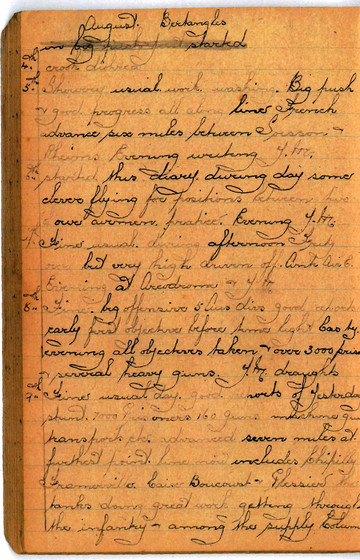 August. Bertangles
in big push just started
4th
crook dishied
5th Showery usual work washing. Big push
& good progress all along line French
advance six miles between Soisson &
Rheims Evening writing Y.M.
started this diary during day some
clever flying for positions between
our airmen. practice. Evening Y.M.
Fine usual during afternoon Fritz
over but very high driven off Anti Airc
Evening at Areodrome & Y.M.
8th Fine. big offensive 5 Aus divs good report
early first objective before time light cas ty.
evening all objectives taken & over 3000 pris
& several heavy guns. Y.M. draughts
9th Fine usual day. good reports of yesterday
stunt 7000 prisoners 160 guns machine gu
transports etc. advanced seven miles at
furthest point line now includes Chipilly
Framerville. Caix Boucourt & Plessier the
tanks doing great work getting through
the infantry & among the supply Colum